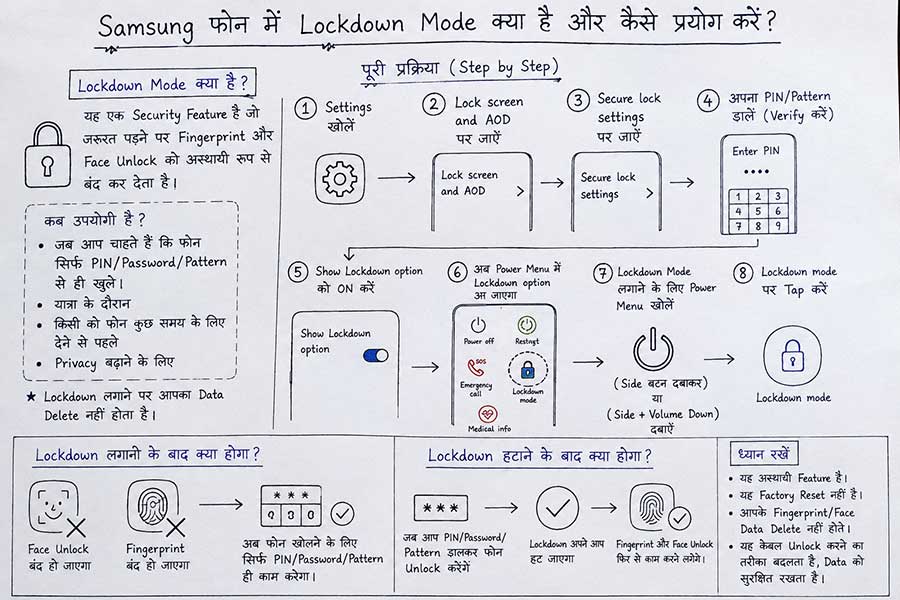 Samsung फोन में Lockdown Mode क्या है और कैसे प्रयोग करें?
Lockdown Mode क्या है?
यह एक Security Feature है जो
जरूरत पड़ने पर Fingerprint और
Face Unlock को अस्थायी रूप से
बंद कर देता है।
कब उपयोगी है?
• जब आप चाहते हैं कि फोन
सिर्फ PIN/Password/Pattern
से ही खुले।
• यात्रा के दौरान
• किसी को फोन कुछ समय के लिए
देने से पहले
• Privacy बढ़ाने के लिए
★ Lockdown लगाने पर आपका Data
Delete नहीं होता है।
पूरी प्रक्रिया (Step by Step)
1 Settings
खोलें
2 Lock screen
and AOD
पर जाऐं
Lock screen
and AOD >
3 Secure lock
settings
पर जाऐं
Secure lock
settings >
4 अपना PIN/Pattern
डालें (Verify करें)
Enter PIN
1 2 3
4 5 6
7 8 9
5 Show Lockdown option
को ON करें
Show Lockdown
option
6 अब Power Menu में
Lockdown option
आ जाएगा
Power off
Restngt
SOS
Emergency
call
Lockdown
mode
Medical info
7 Lockdown Mode
लगाने के लिए Power
Menu खोलें
(Side बटन दबाकर)
या
(Side + Volume Down)
दबाऐं
8 Lockdown mode
पर Tap करें
Lockdown mode
Lockdown लगानी के बाद क्या होगा?
Face Unlock
बंद हो जाएगा
Fingerprint
बंद हो जाएगा
***
अब फोन खोलने के लिए
सिर्फ PIN/Password/Pattern
ही काम करेगा।
Lockdown हटाने के बाद क्या होगा?
***
जब आप PIN/Password/
Pattern डालकर फोन
Unlock करेंगें
Lockdown अपने आप
हट जाएगा
Fingerprint और Face Unlock
फिर से काम करने लगेंगे।
ध्यान रखें
• यह अस्थायी Feature है।
• यह Factory Reset नहीं है।
• आपके Fingerprint/Face
Data Delete नहीं होते।
• यह केबल Unlock करने का
तरीका बदलता है, Data को
सुरक्षित रखता है।